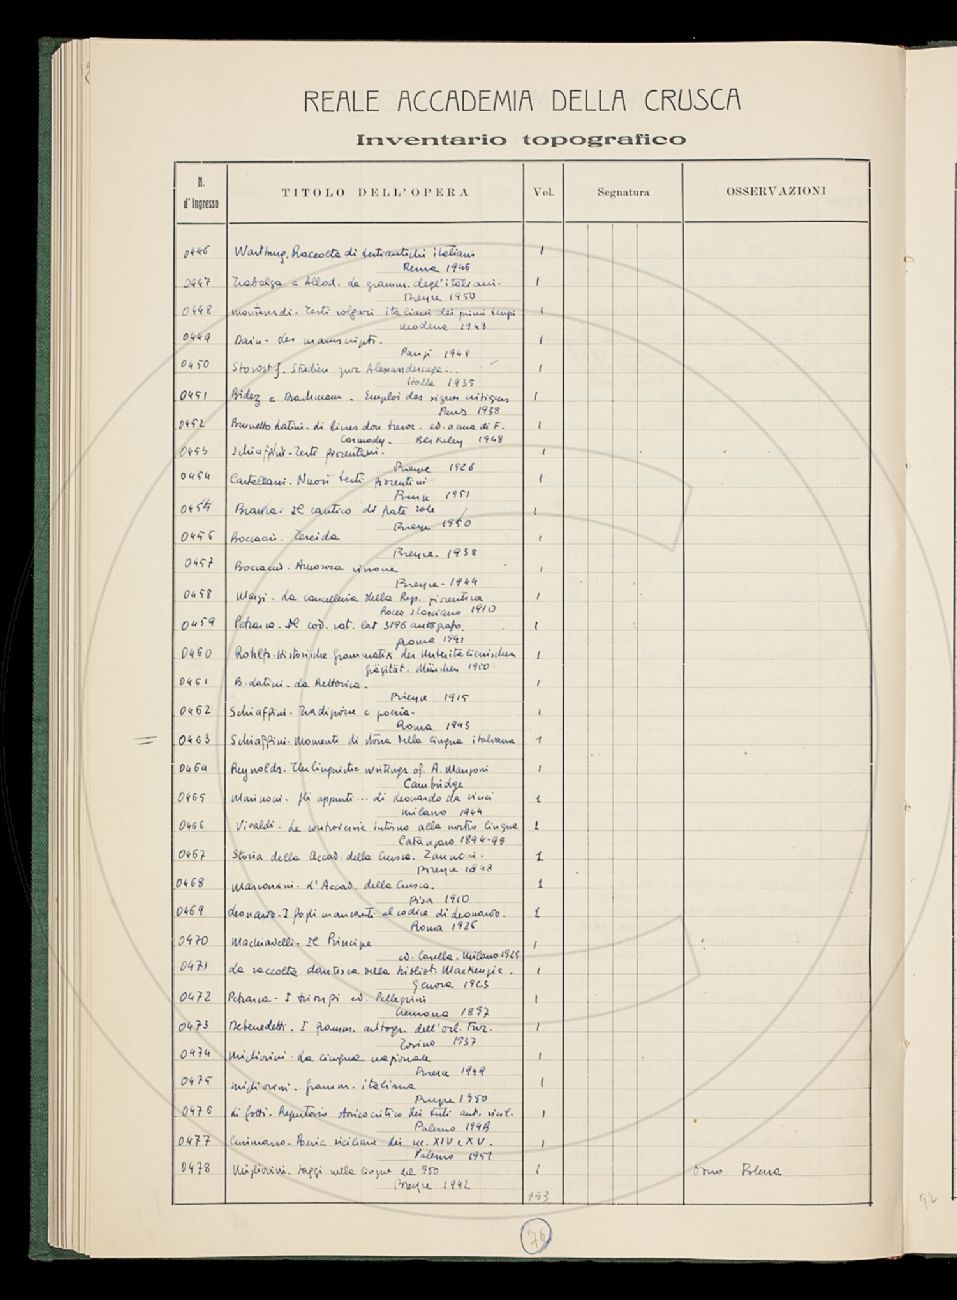 REALE ACCADEMIA DELLA CRUSCA
Inventario topografico
N. d'Ingresso TITOLO DELL'OPERA Vol. Segnatura OSSERVAZIONI
0446 Wartburg. Raccolta di testi antichi italiani 1
Roma 1946
0447 Trabalza e Allod. La gramm. degl'italiani. 1
Firenze 1950
0448 Monteverdi - Testi volgari italiani dei primi tempi 1
Modena 1943
0449 Dain - Les manuscripts. 1
Parigi 1949
0450 Studien zur Alexandersage... 1
Halle 1935
0451 Bidez e Drachmann. Emploi des signes critiques 1
Paris 1938
0452 Brunetto Latini - Li livres dou tresor. ed. a cura di F. 1
Carmody. Berkeley 1948
0453 Schiaffini - Testi fiorentini. 1
Firenze 1926
0454 Castellani. Nuovi testi fiorentini 1
Firenze 1951
0455 Branca. Il cantico di frate sole 1
Firenze 1950
0456 Boccaccio. Teseida 1
Firenze - 1938
0457 Boccaccio. Amorosa visione 1
Firenze - 1944
0458 Marzi. La cancelleria della Rep. fiorentina 1
Rocca S. Casciano 1910
0459 Petrarca. Il cod. vat. lat 3196 autografo. 1
Roma 1941
0460 Rohlfs. Historische Grammatik der Unteritalienischen 1
Gräzität. München 1950
0461 B. Latini - La Rettorica. 1
Firenze 1915
0462 Schiaffini. Tradizione e poesia - 1
Roma 1943
0463 Schiaffini. Momenti di storia della lingua italiana 1
0464 Reynolds. The linguistic writings of A. Manzoni 1
Cambridge
0465 Marinoni. Gli appunti ... di Leonardo da Vinci 1
Milano 1944
0466 Vivaldi - Le controversie intorno alla nostra lingua 1
Catanzaro 1894-98
0467 Storia della Accad. della Crusca. Zannoni. 1
Firenze 1848
0468 Marconcini. L'Accad. della Crusca. 1
Pisa 1910
0469 Leonardo - I fogli mancanti al codice di Leonardo. 1
Roma 1926
0470 Machiavelli - Il Principe 1
ed. Casella. Milano 1929
0471 La raccolta dantesca della bibliot. Mackenzie. 1
Genova 1923
0472 Petrarca - I trionfi ed. Pellegrini 1
Cremona 1897
0473 Debenedetti. I framm. autogr. dell'Orl. Fur. 1
Torino 1937
0474 Migliorini. La lingua nazionale 1
Firenze 1949
0475 Migliorini. Gramm. italiana 1
Firenze 1950
0476 Li Gotti. Repertorio storico critico dei testi ant. sicil. 1
Palermo 1948
0477 Cusimano. Poesia siciliana dei sec. XIV e XV. 1
Palermo 1951
0478 Migliorini. Saggi sulla lingua del 900 1
Firenze 1942
133
76
92